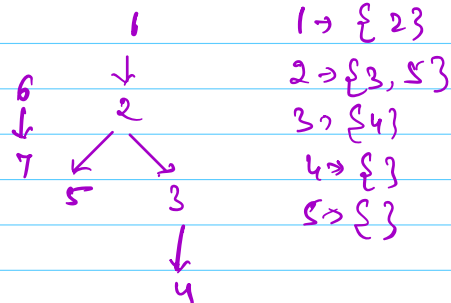 1
6
2
7
5
3
4
1 → { 2 }
2 → {3, 5 }
3 → {4}
4 → { }
5 → { }